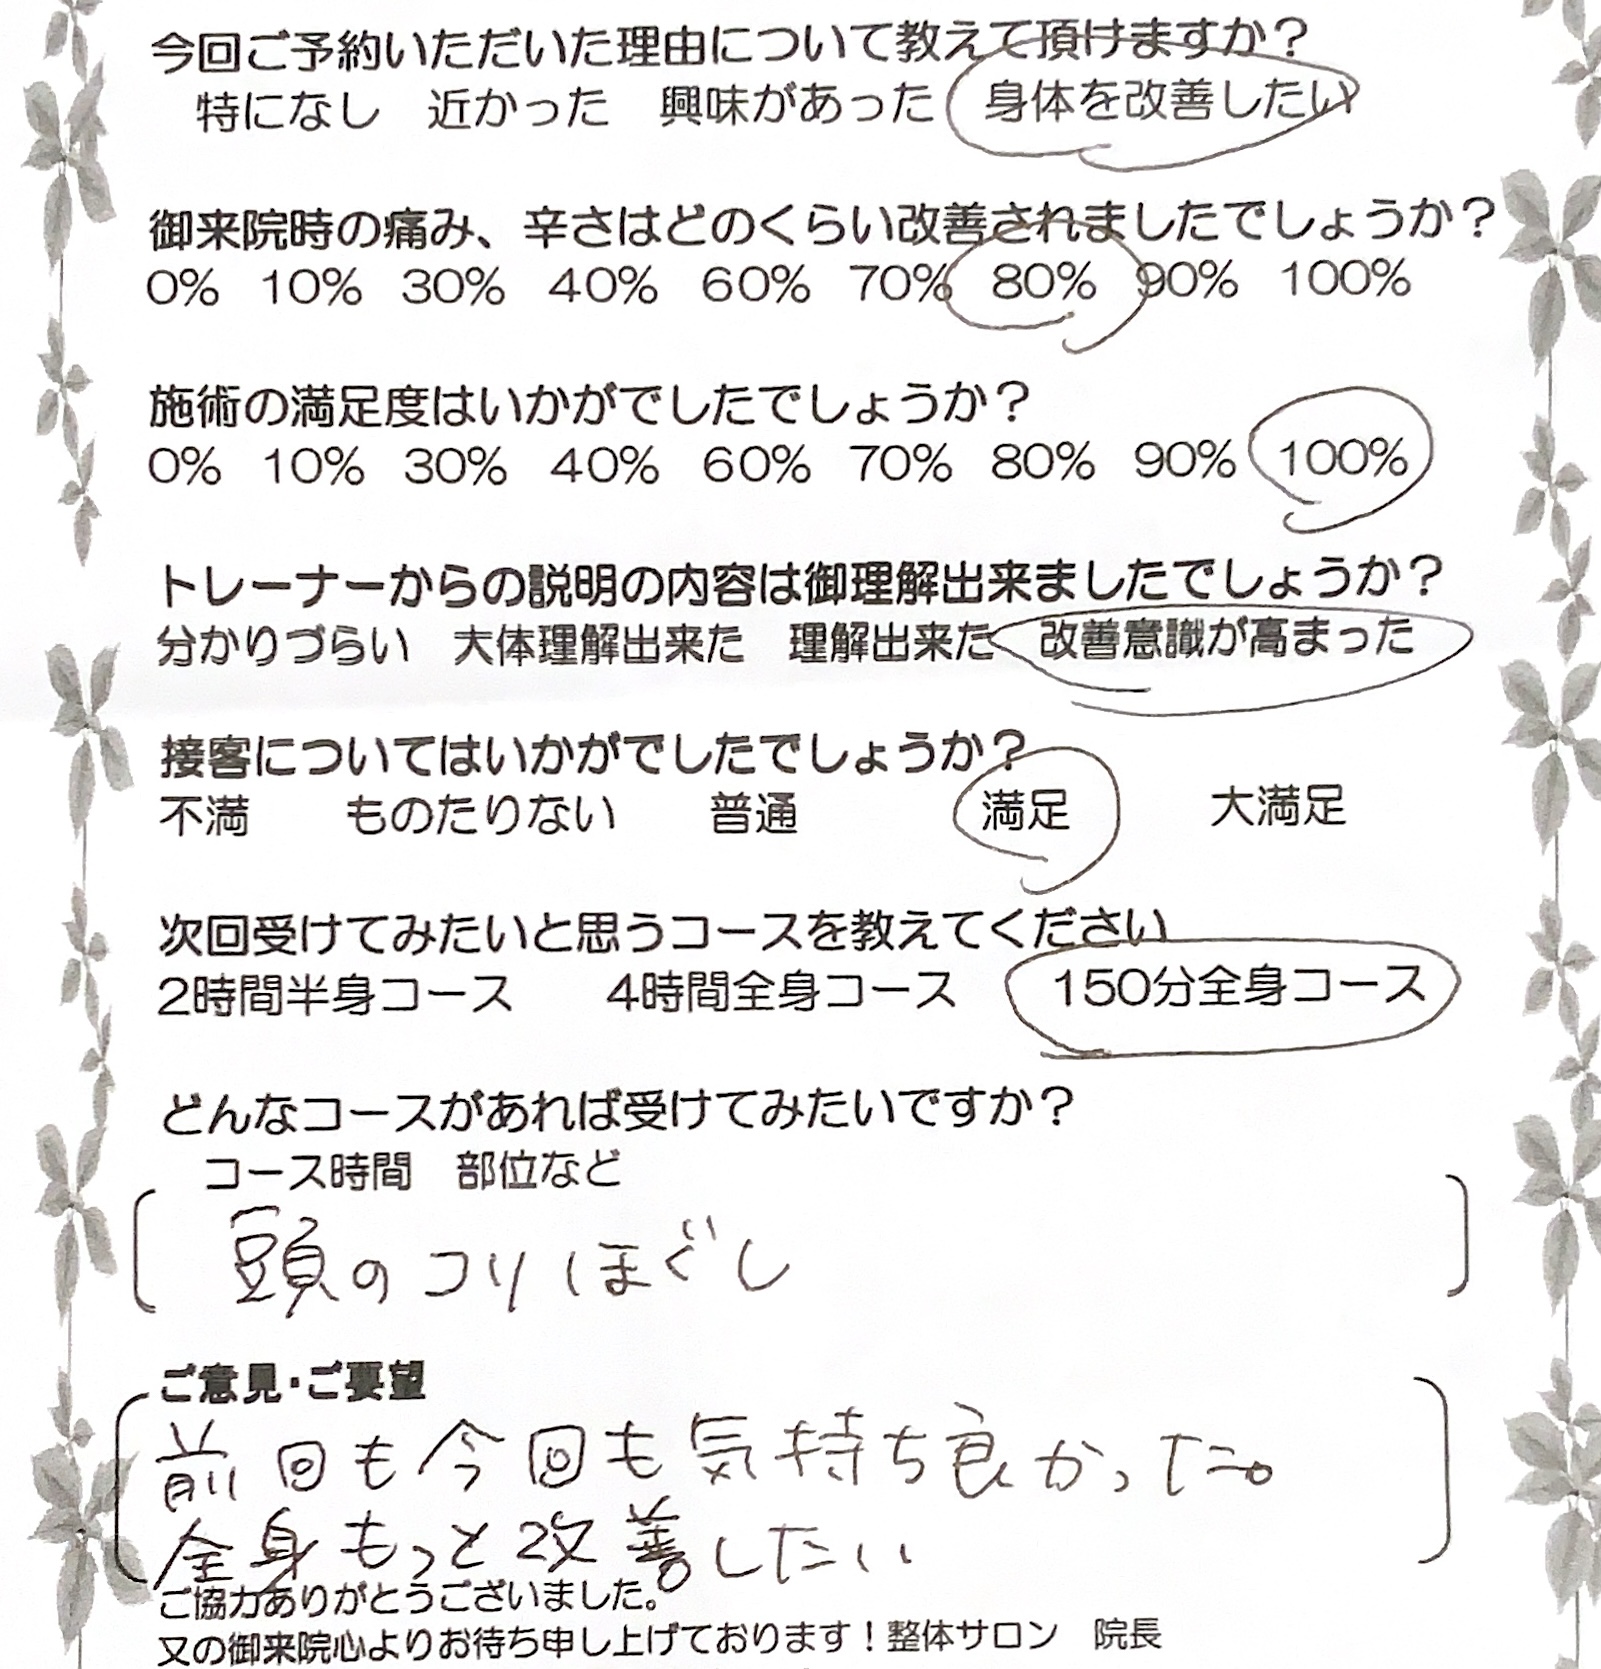 今回ご予約いただいた理由について教えて頂けますか？
特になし 近かった 興味があった 身体を改善したい
御来院時の痛み、辛さはどのくらい改善されましたでしょうか？
0% 10% 30% 40% 60% 70% 80% 90% 100%
施術の満足度はいかがでしたでしょうか？
0% 10% 30% 40% 60% 70% 80% 90% 100%
トレーナーからの説明の内容は御理解出来ましたでしょうか？
分かりづらい 大体理解出来た 理解出来た 改善意識が高まった
接客についてはいかがでしたでしょうか？
不満 ものたりない 普通 満足 大満足
次回受けてみたいと思うコースを教えてください
2時間半身コース 4時間全身コース 150分全身コース
どんなコースがあれば受けてみたいですか？
コース時間 部位など
頭のコリほぐし
ご意見・ご要望
前回も今回も気持ち良かった。
全身もっと改善したい
ご協力ありがとうございました。
又の御来院心よりお待ち申し上げております！整体サロン 院長